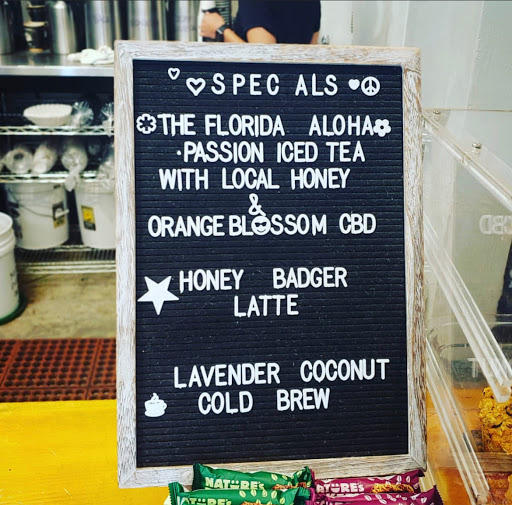 SPEC ALS
THE FLORIDA ALOHA
·PASSION ICED TEA
WITH LOCAL HONEY
&
ORANGE BLOSSOM CBD
HONEY BADGER
LATTE
LAVENDER COCONUT
COLD BREW
NATURE'S
NATURE'S
CBD